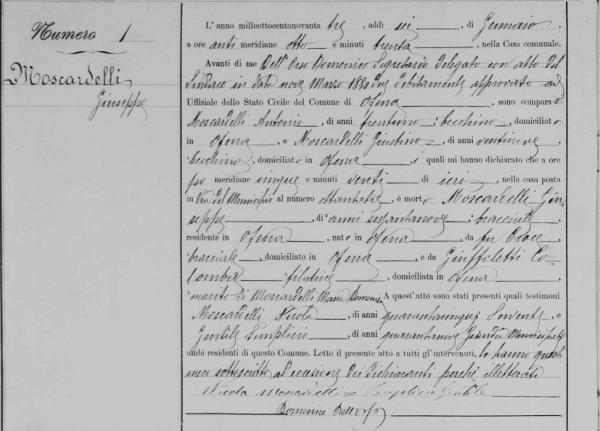 Numero 1
Moscardelli
Giuseppe
L'anno milleottocentonovanta tre, addì sei, di Gennaio
a ore anti meridiane otto e minuti trenta, nella Casa comunale.
Avanti di me Dell'Orso Domenico Segretario Delegato con atto del
Sindaco in data nove Marzo 188 debitamente approvato ad
Uffiziale dello Stato Civile del Comune di Ofena, sono comparsi
Moscardelli Antonio, di anni trentuno, becchino, domiciliato
in Ofena e Moscardelli Giustino, di anni ventinove
becchino, domiciliato in Ofena, i quali mi hanno dichiarato che a ore
po meridiane cinque e minuti venti di ieri, nella casa posta
in Via del Municipio al numero ottantatre, è morto Moscardelli Giu-
seppe, di anni sessantanove, bracciale
residente in Ofena, nato in Ofena, da fu
bracciale, domiciliato in Ofena, e da Giuffeletti Co-
lomba filatrice, domiciliata in Ofena
marito di Moscardelli Maria Domenica A quest'atto sono stati presenti quali testimoni
Moscardelli Nicola, di anni quarantacinque Servente e
Gentile Simplicio, di anni quarantanove Guardia Municipale
ambi residenti di questo Comune. Letto il presente atto a tutti gl'intervenuti, lo hanno questi
meco sottoscritto ad eccezione dei dichiaranti perché illetterati
Nicola Moscardelli = Simplicio Gentile
Domenico Dell'Orso